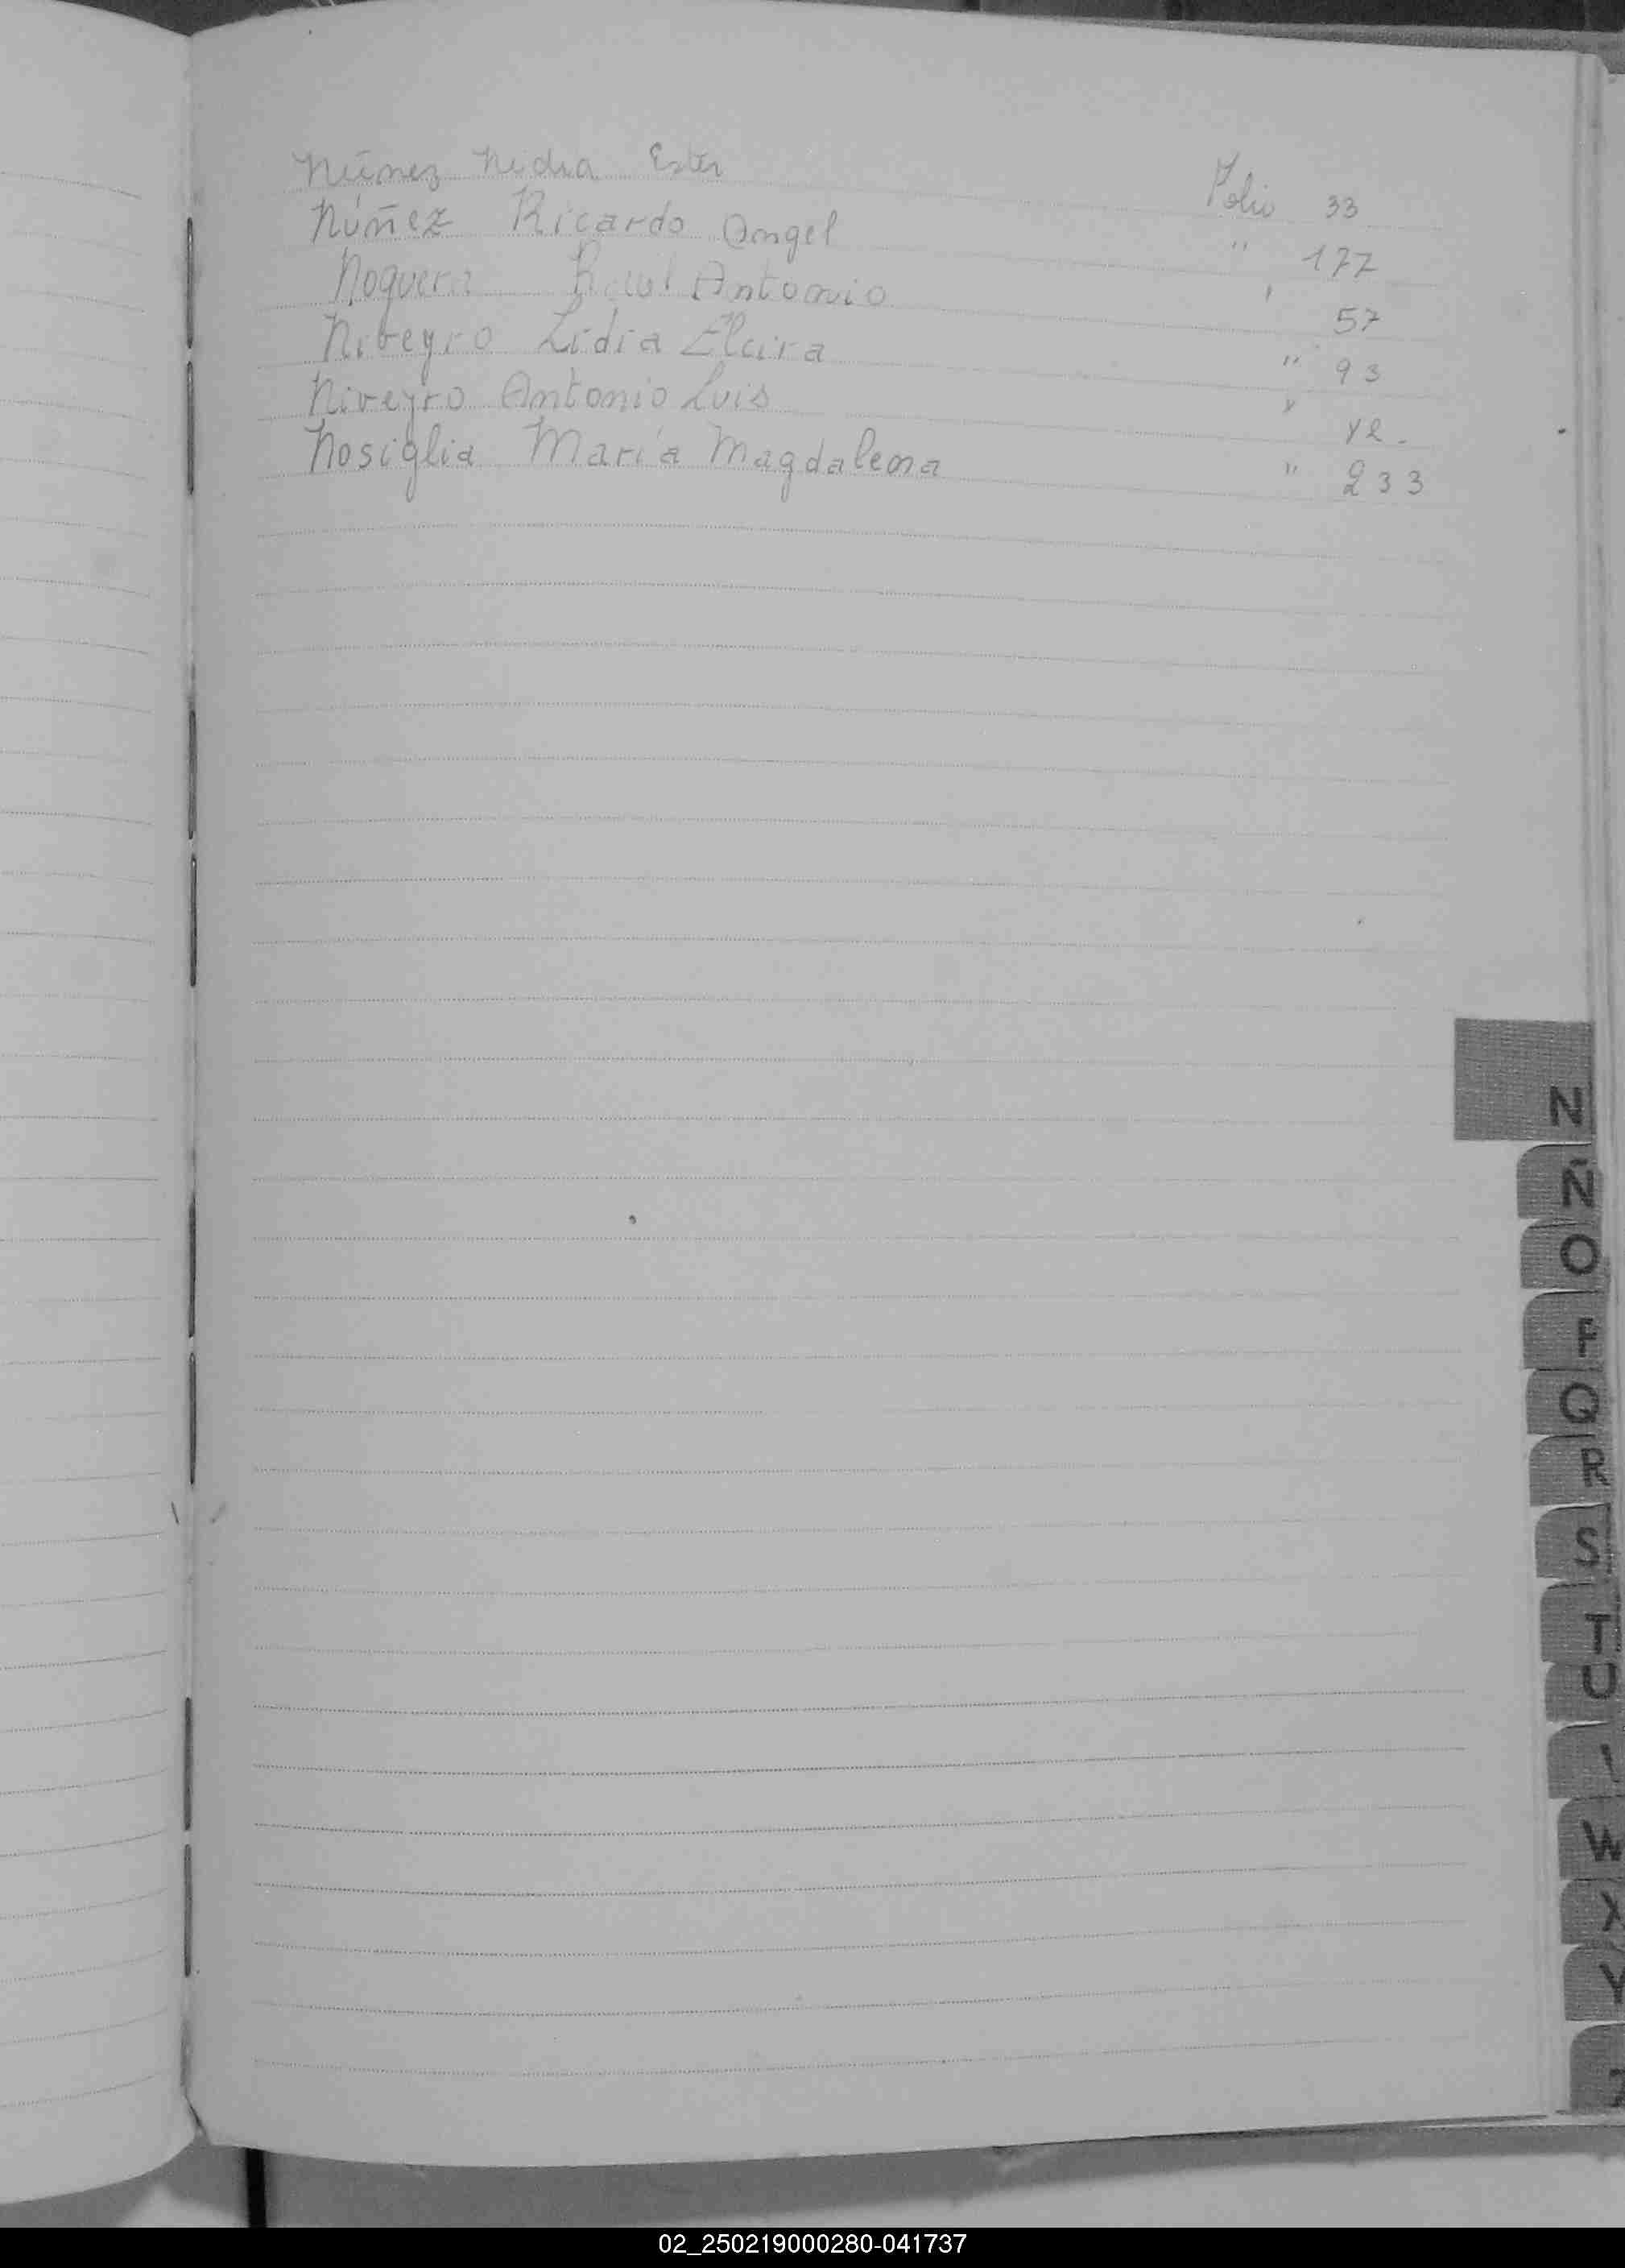 Núñez Nidia Ester Folio 33
Núñez Ricardo Angel " 177
Noguera Raúl Antonio " 57
Niveyro Lidia Elcira " 93
Niveyro Antonio Luis "
Nosiglia María Magdalena " 233
N
Ñ
O
P
Q
R
S
T
U
W
X
Y
Z
02_250219000280-041737